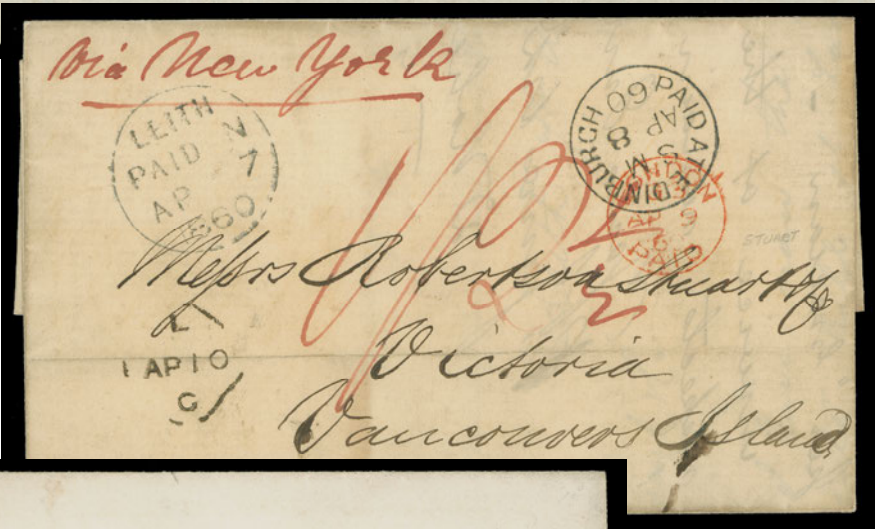 via New York
LEITH
PAID
AP
1860
N
7
PAID AT EDINBURGH
60
AP
8
5 M
LONDON
AP 9
60
PAID
STUART
1/2½
Messrs Robertson Stuart & Co
Victoria
Vancouvers Island
L
1 AP10